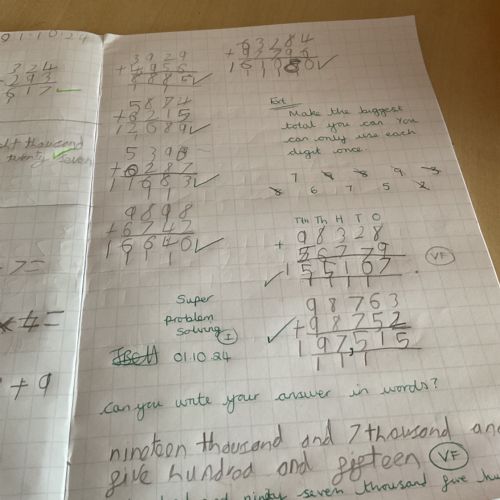 01.10.24
324
293
617 ✓
thousand
twenty seven
7=
4=
+ 9
3929
+ 4956
8885 ✓
1 1
5874
+ 6215
12089 ✓
1
539
+ 6287
11683 ✓
9898
+ 6742
16640 ✓
1 1 1
63284
160 ✓
Ext
Make the biggest
total you can. You
can only use each
digit once.
7 9 8 9 3
8 6 7 5 2
TTh Th H T O
98328
+ 56779
155107
VF
98763
+ 98752
197,515
1 1 1
✓
Super
Problem
Solving I
01.10.24
can you write your answer in words?
nineteen thousand and 7 thousand and
five hundred and fifteen VF
and ninety seven thousand five